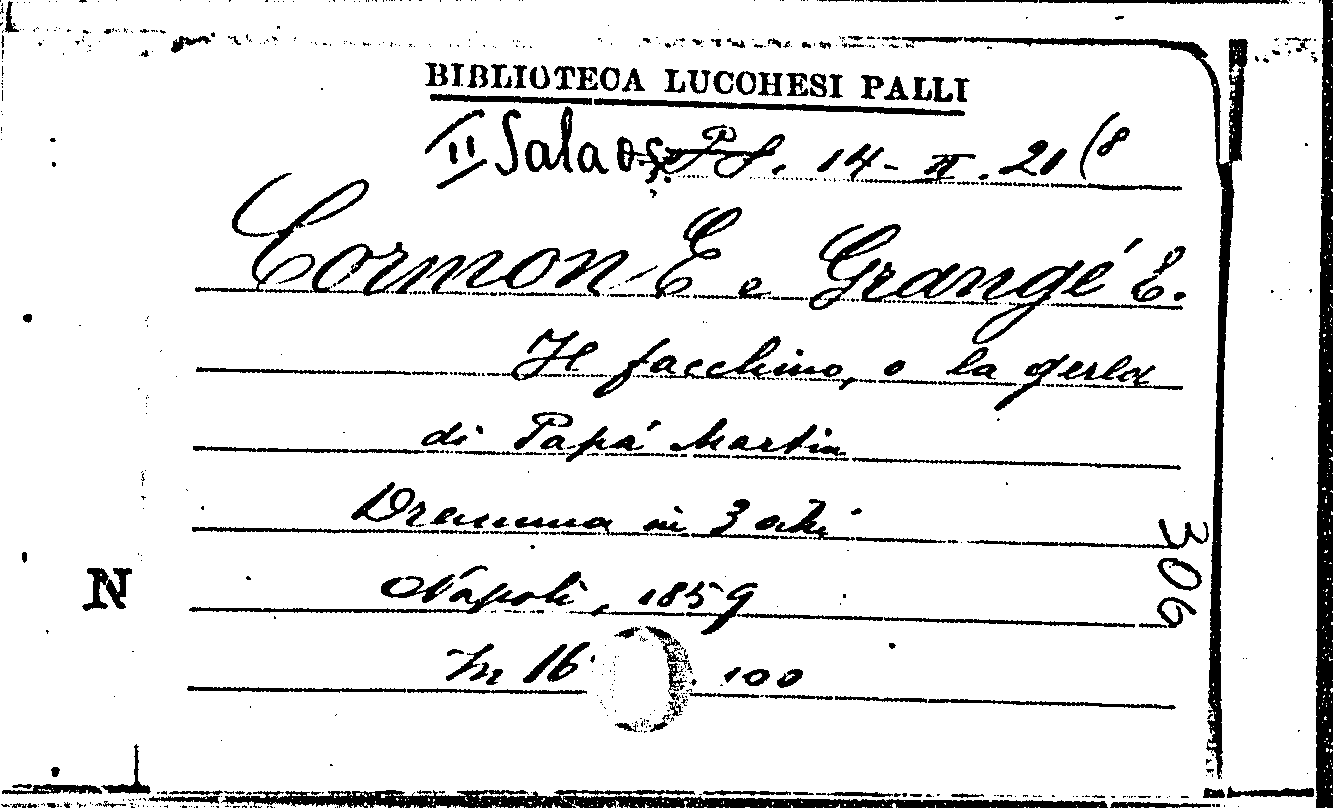 BIBLIOTECA LUCCHESI PALLI
II Sala 14-II. 21(8
Cormon E e Grangé E.
Il facchino, o la gerla
di Papá Martin
Dramma in 3 atti
Napoli, 1859
In 16 . 100
N
306